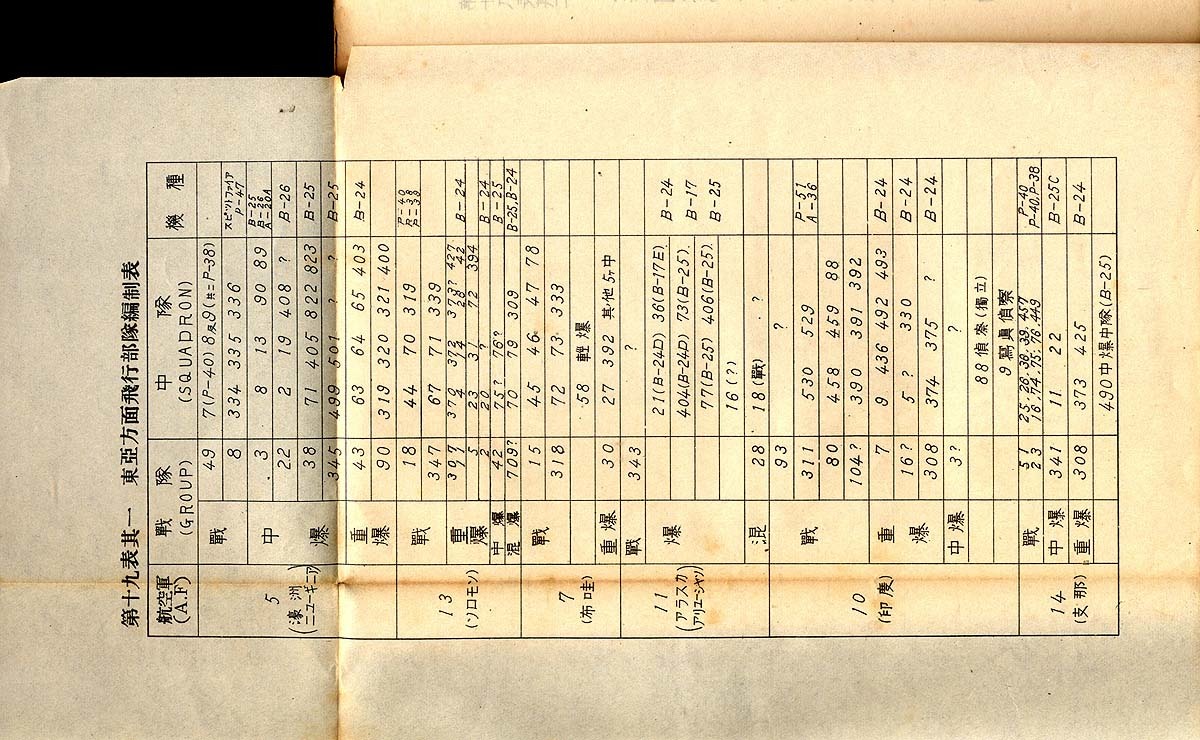 第十九表其一 東亞方面飛行部隊編制表
航空軍 (A.F) 戰隊 (GROUP) 中隊 (SQUADRON) 機種
5 (濠洲 ニューギニア) 戰 49 7(P-40) 8及9(共ニP-38)
8 334 335 336 スピットファイア P-47
中爆 3 8 13 90 89 B-25 B-26 A-20A
22 2 19 408 ? B-26
38 71 405 822 823 B-25
345 499 501 ? ? B-25
重爆 43 63 64 65 403 B-24
90 319 320 321 400
13 (ソロモン) 戰 18 44 70 319 P-40 P-38
347 67 71 339 P-39
重爆 307 370 372 373? 427
5 23 31 72 394 B-24
2 20 ? B-24
中爆 42 75? 76? B-25
混爆 709? 70 79 309 B-25,B-24
7 (布哇) 戰 15 45 46 47 78
318 72 73 333
58 輕爆
重爆 30 27 392 其ノ他5ヶ中
11 (アラスカ アリューシャン) 戰 343 ?
爆 21(B-24D) 36(B-17E) B-24
404(B-24D) 73(B-25) B-17
77(B-25) 406(B-25) B-25
16(?)
混 28 18(戰) ?
10 (印度) 戰 93 ?
311 530 529 P-51 A-36
80 458 459 88
104? 390 391 392
重爆 7 9 436 492 493 B-24
16? 5 ? 330 B-24
308 374 375 ? B-24
中爆 3? ?
88偵察(獨立)
9寫眞偵察
14 (支那) 戰 51 25. 26. 38. 39. 437 P-40
23 16. 74. 75. 76. 449 P-40,P-38
中爆 341 11 22 B-25C
重爆 308 373 425 B-24
490中爆中隊(B-25)